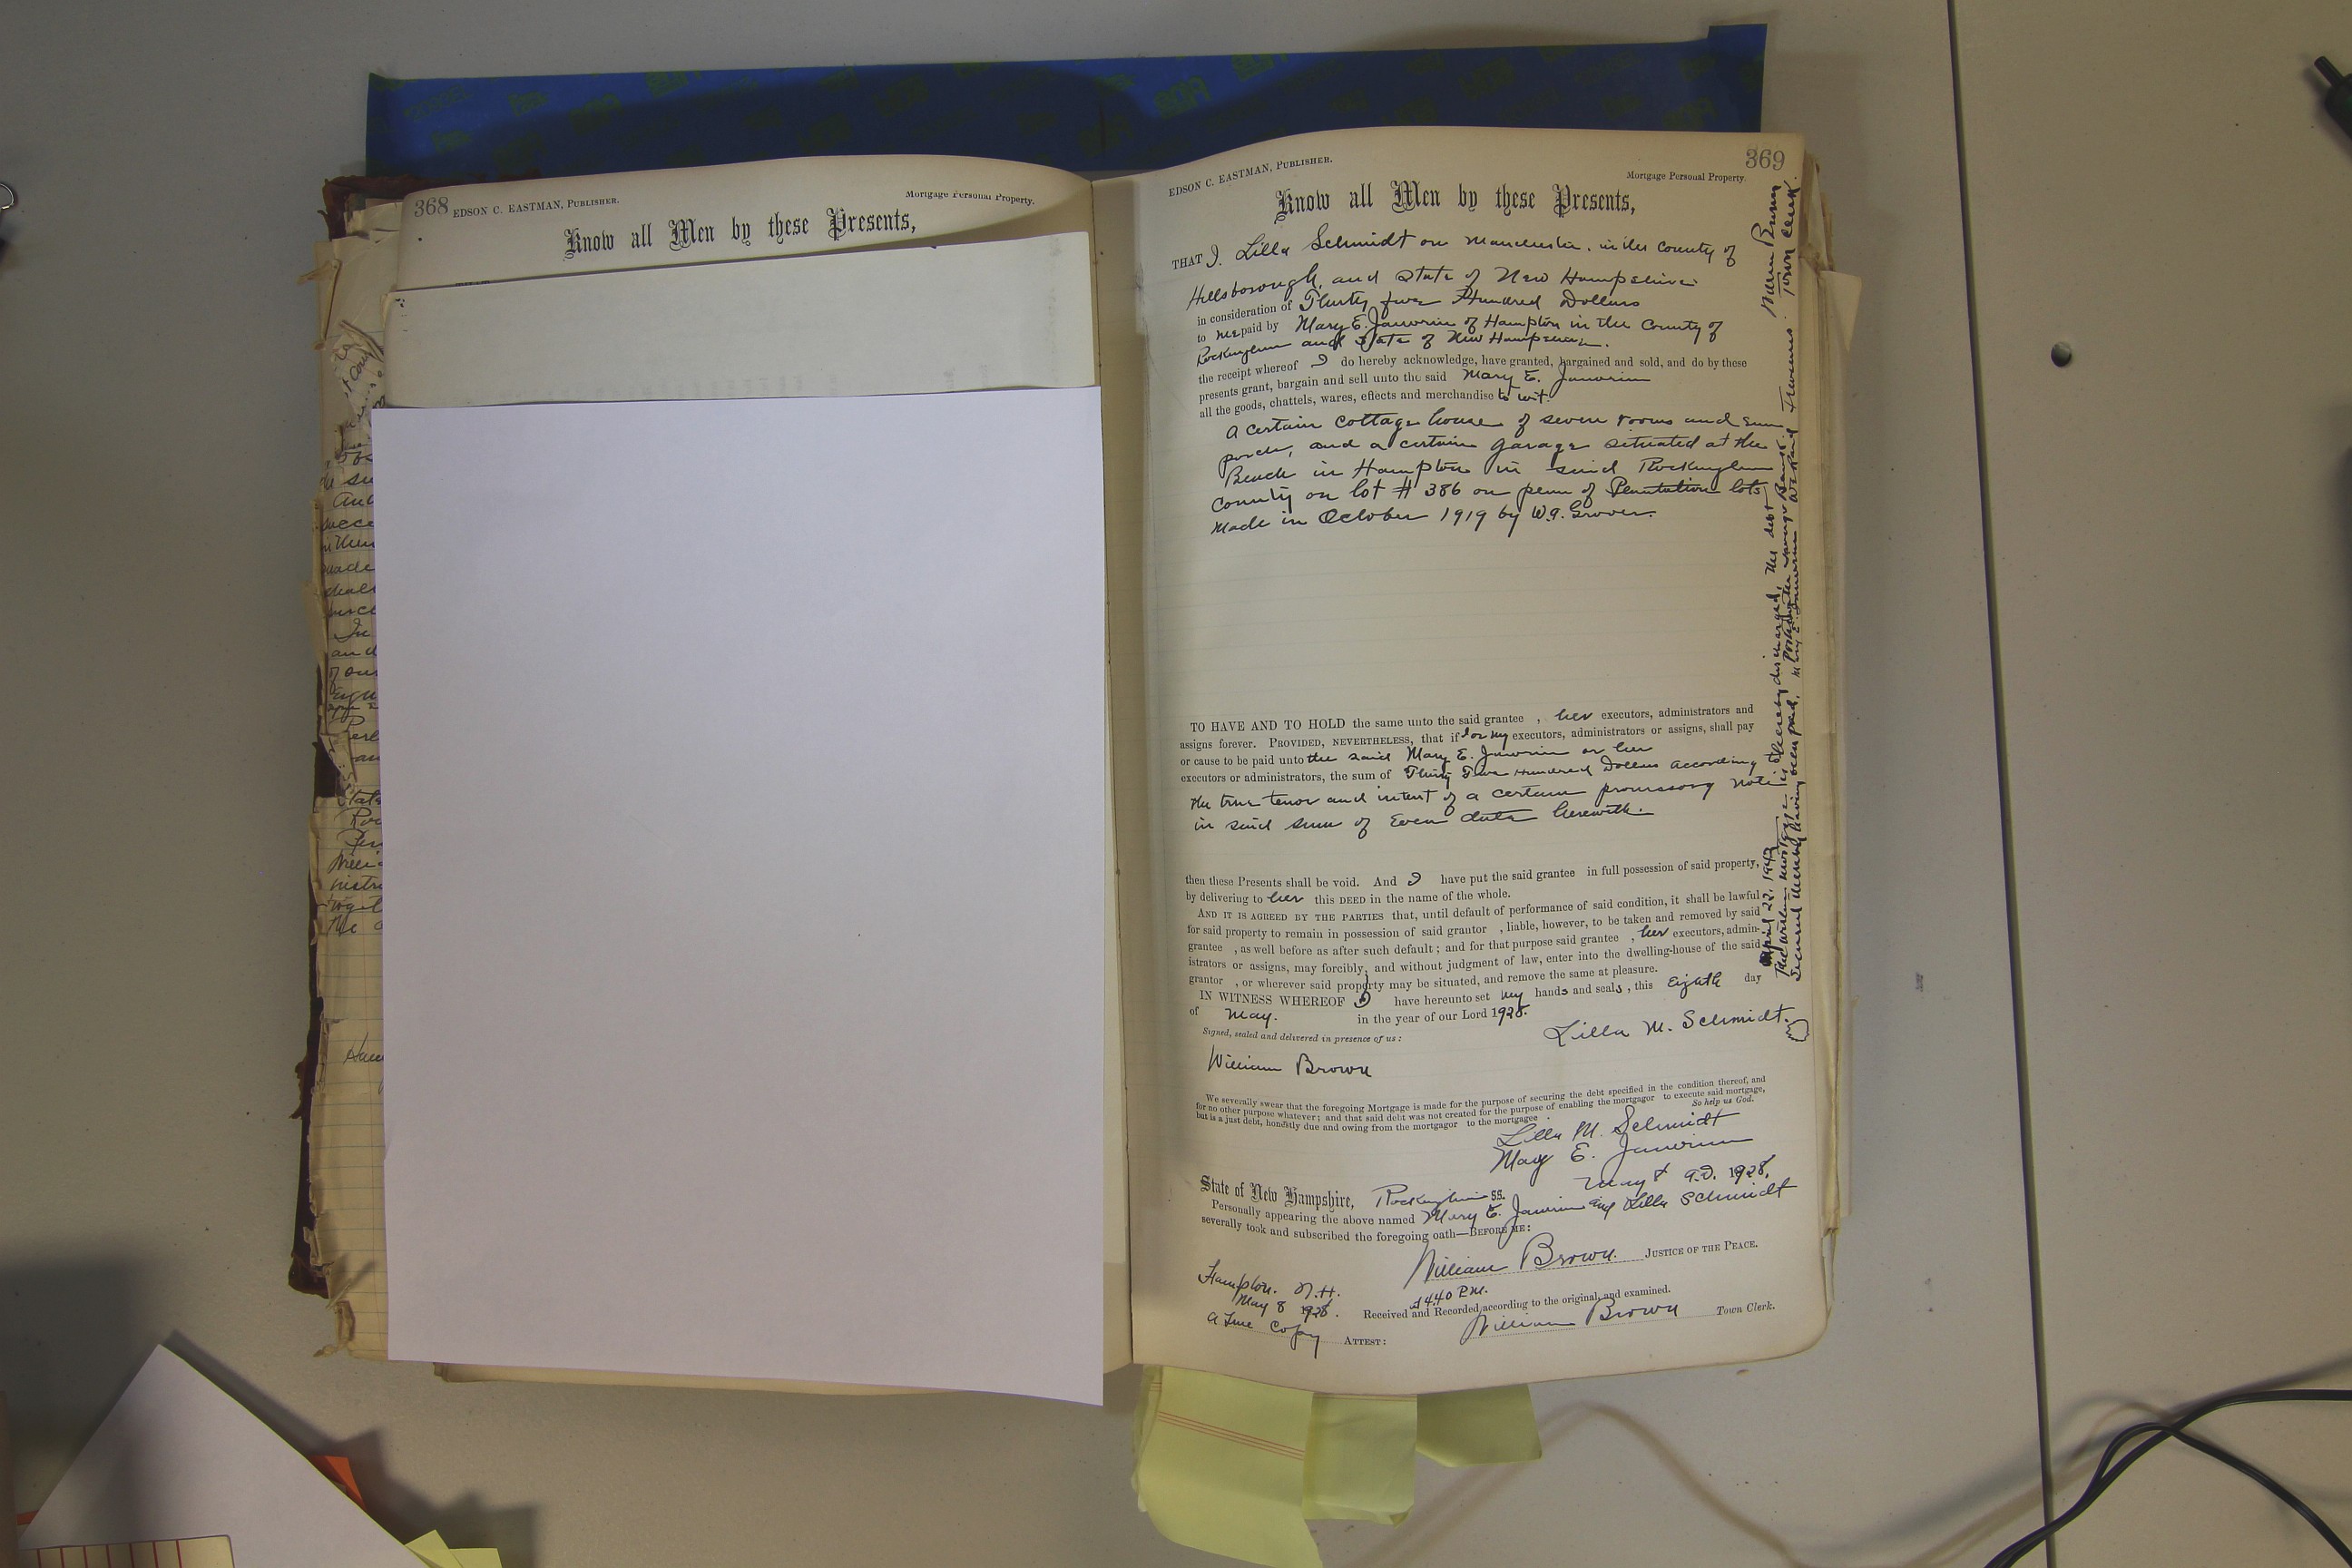 368 EDSON C. EASTMAN, PUBLISHER. Mortgage Personal Property.
Know all Men by these Presents,
369
EDSON C. EASTMAN, PUBLISHER. Mortgage Personal Property.
Know all Men by these Presents,
THAT I. Lilla Schmidt on Manchester. in the County of
Hillsborough, and State of New Hampshire
in consideration of Thirty Hundred Dollars
to me paid by Mary E. Janvrin of Hampton in the County of
Rockingham and State of New Hampshire.
the receipt whereof I do hereby acknowledge, have granted, bargained and sold, and do by these
presents grant, bargain and sell unto the said Mary E. Janvrin
all the goods, chattels, wares, effects and merchandise to wit.
A certain cottage house of seven rooms and sun
porch, and a certain garage situated at the
Beach in Hampton in said Rockingham
County on lot # 386 on of lots
made in October 1919 by W.G. Grover.
TO HAVE AND TO HOLD the same unto the said grantee , her executors, administrators and
assigns forever. PROVIDED, NEVERTHELESS, that if I or my executors, administrators or assigns, shall pay
or cause to be paid unto the said Mary E. Janvrin or her
executors or administrators, the sum of Thirty Hundred Dollars according
the true tenor and intent of a certain promissory note
in said sum of Even date herewith.
then these Presents shall be void. And I have put the said grantee in full possession of said property,
by delivering to her this DEED in the name of the whole.
AND IT IS AGREED BY THE PARTIES that, until default of performance of said condition, it shall be lawful
for said property to remain in possession of said grantor , liable, however, to be taken and removed by said
grantee , as well before as after such default ; and for that purpose said grantee , her executors, admin-
istrators or assigns, may forcibly, and without judgment of law, enter into the dwelling-house of the said
grantor , or wherever said property may be situated, and remove the same at pleasure.
IN WITNESS WHEREOF I have hereunto set my hands and seals , this Eighth day
of May. in the year of our Lord 1928.
Signed, sealed and delivered in presence of us :
Lilla M. Schmidt.
William Brown
We severally swear that the foregoing Mortgage is made for the purpose of securing the debt specified in the condition thereof, and
for no other purpose whatever ; and that said debt was not created for the purpose of enabling the mortgagor to execute said mortgage,
but is a just debt, honestly due and owing from the mortgagor to the mortgagee . So help us God.
Lilla M. Schmidt
Mary E. Janvrin
May 8 A.D. 1928,
State of New Hampshire, Rockingham SS.
Personally appearing the above named Mary E. Janvrin and Lilla Schmidt
severally took and subscribed the foregoing oath—BEFORE ME :
William Brown. JUSTICE OF THE PEACE.
Hampton. N.H.
May 8 1928. at 4.40 P.M.
Received and Recorded according to the original, and examined.
A True Copy ATTEST : William Brown Town Clerk.
April 22, 1943
The within mortgage is hereby discharged, the debt
secured thereby having been paid,
Mary E. Janvrin
William Brown
Town Clerk.